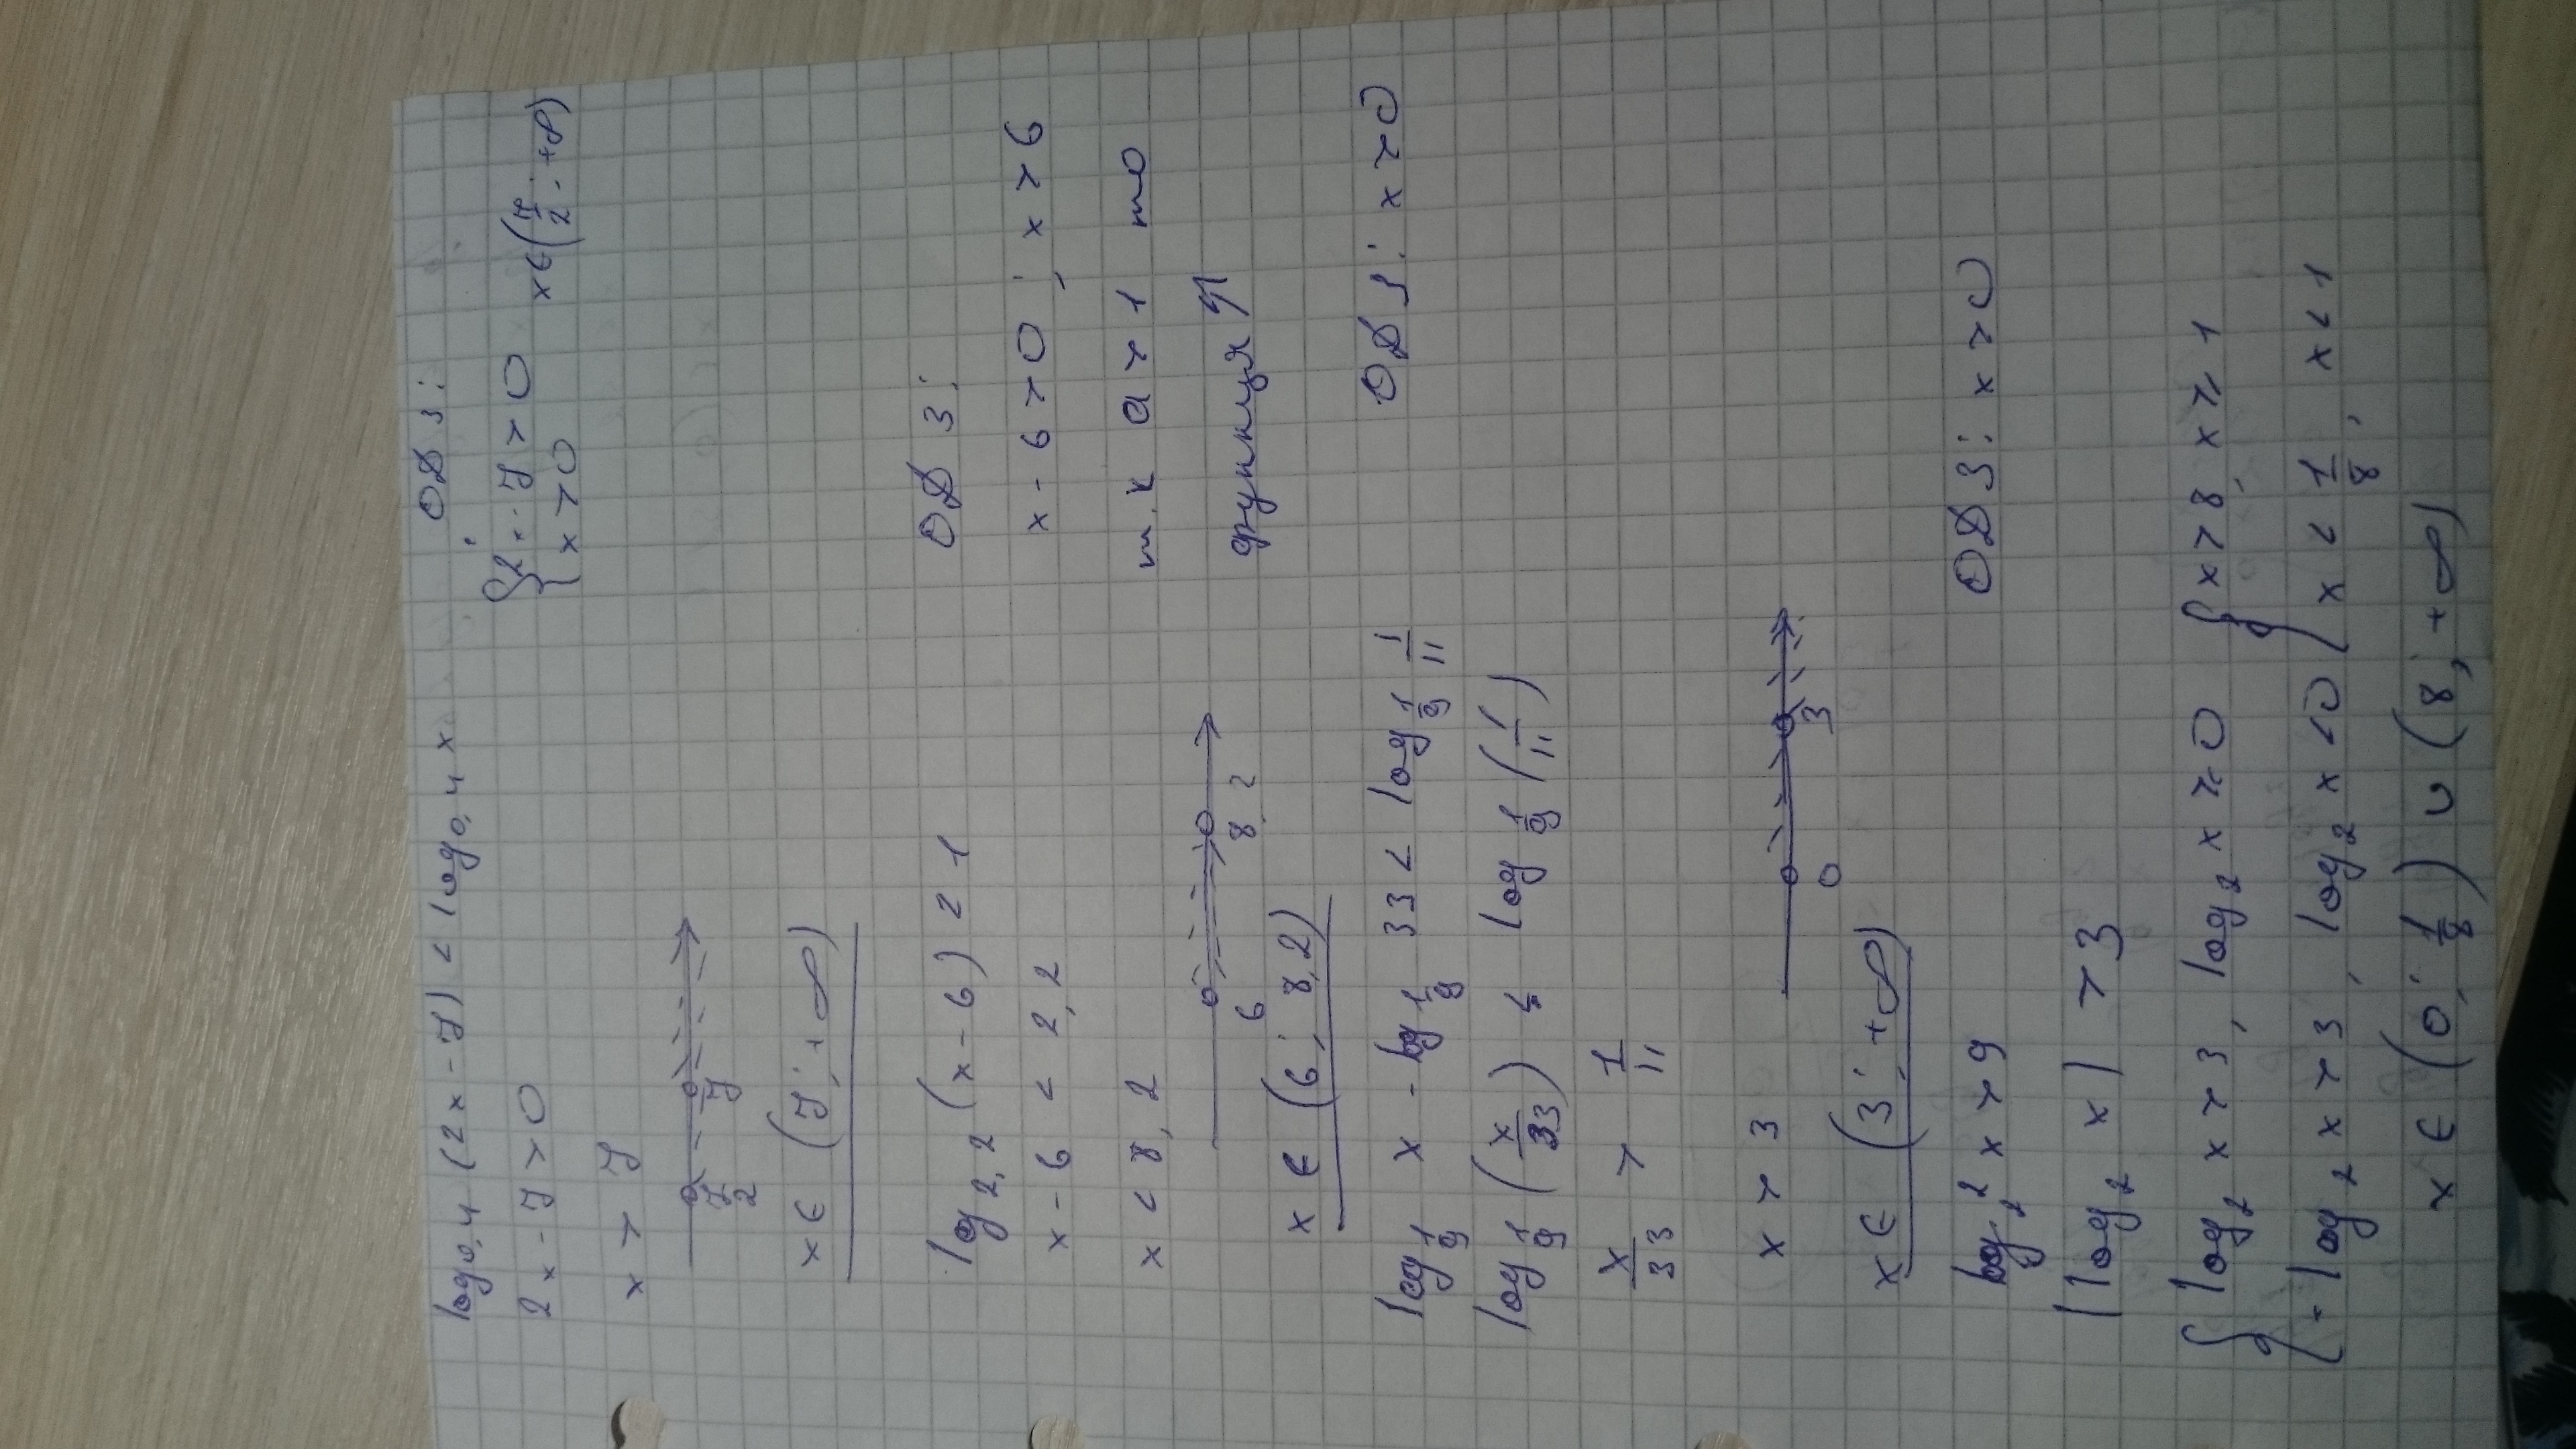 log₀,₄ (2x - 7) < log₀,₄ x ОДЗ:
2x - 7 > 0 { 2x - 7 > 0
x > 0 x ∈ (7/2; +∞)
x > 7
7/2 7
x ∈ (7; +∞)
log₂,₂ (x - 6) < 1 ОДЗ:
x - 6 < 2,2 x - 6 > 0; x > 6
x < 8,2 т.к a > 1 то
6 8,2 функция ↑
x ∈ (6; 8,2)
log_1/9 x - log_1/9 33 < log_1/9 1/11 ОДЗ: x > 0
log_1/9 (x/33) < log_1/9 (1/11)
x/33 > 1/11
x > 3
0 3
x ∈ (3; +∞)
log₂² x > 9 ОДЗ: x > 0
|log₂ x| > 3
{ log₂ x > 3, log₂ x ≥ 0 { x > 8, x ≥ 1
- log₂ x > 3, log₂ x < 0 x < 1/8, x < 1
x ∈ (0; 1/8) ∪ (8; +∞)